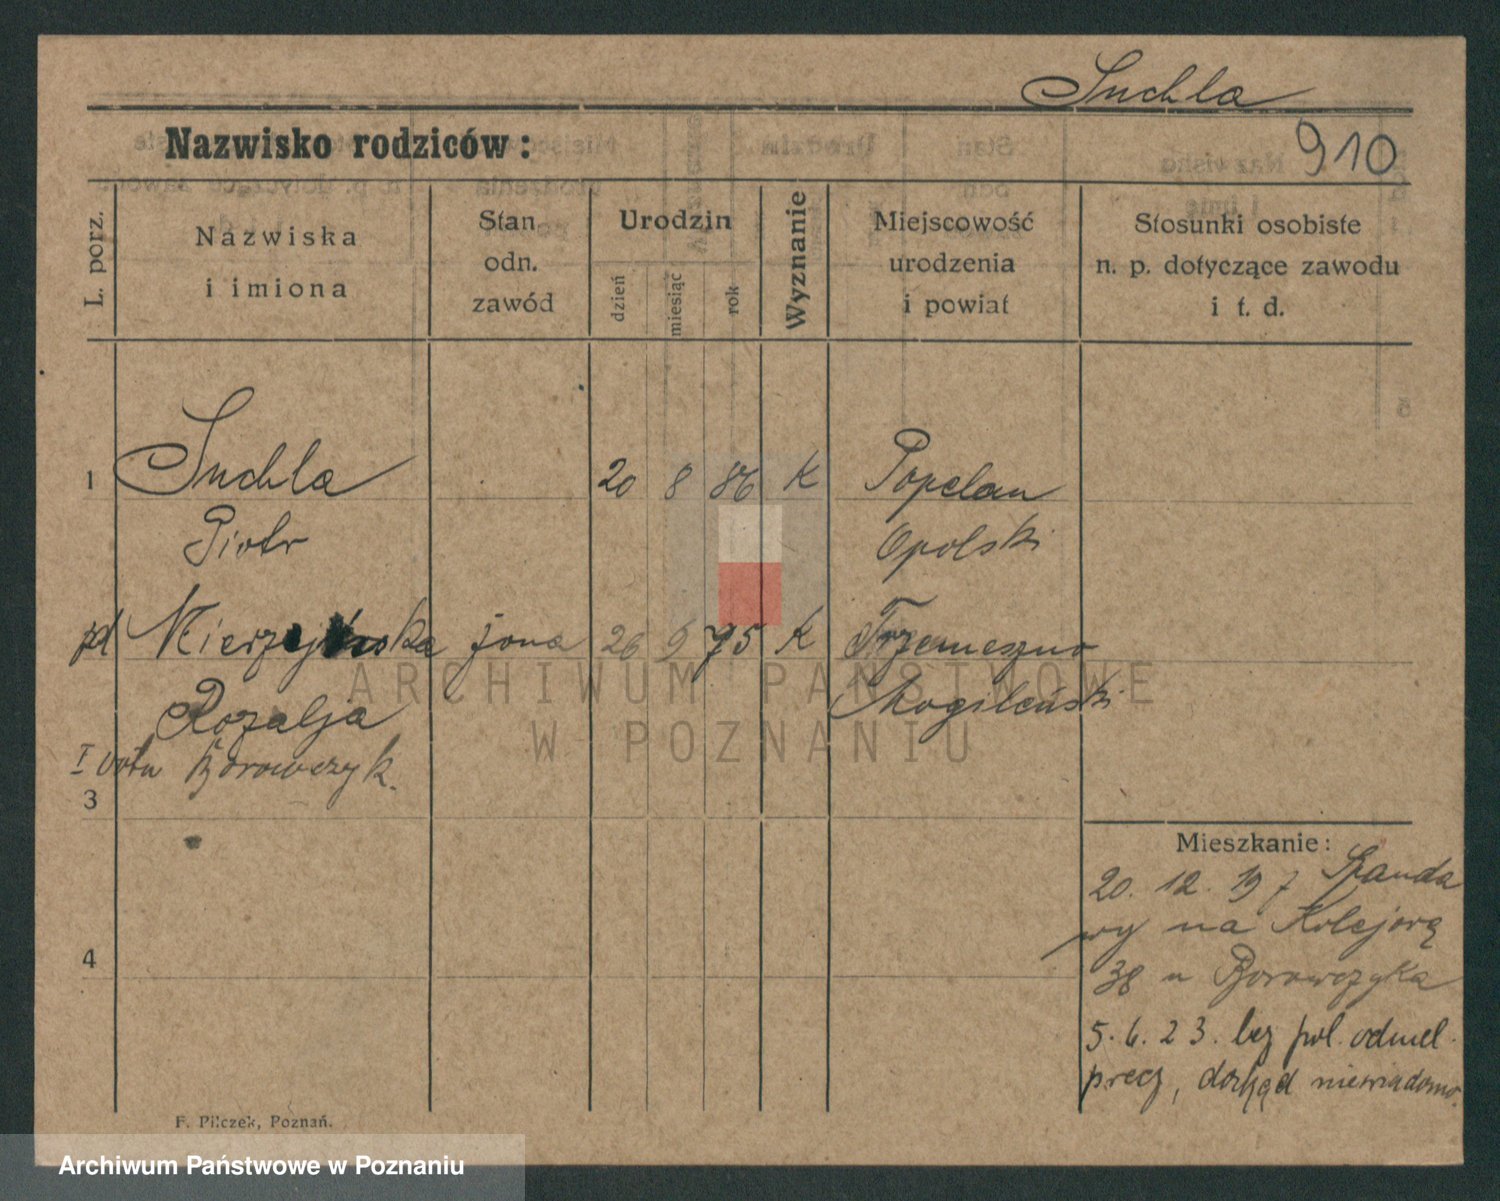 Suchla
Nazwisko rodziców:
910
L. porz.
Nazwiska
i imiona
Stan
odn.
zawód
Urodzin
dzień
miesiąc
rok
Wyznanie
Miejscowość
urodzenia
i powiat
Stosunki osobiste
n. p. dotyczące zawodu
i t. d.
1 Suchla 20 8 86 K Popelau
Piotr Opolski
żona 26 9 75 K Trzemeszno
Rozalja Mogileński
I voto Borowczyk.
3
Mieszkanie:
20. 12. 19 z Spanda
wy na Kolejową
38 u Borowczyka
4
5. 6. 23. bez pol. odmel.
precz, dokąd niewiadomo.
F. Pilczek, Poznań.
ARCHIWUM PAŃSTWOWE
W POZNANIU
Archiwum Państwowe w Poznaniu